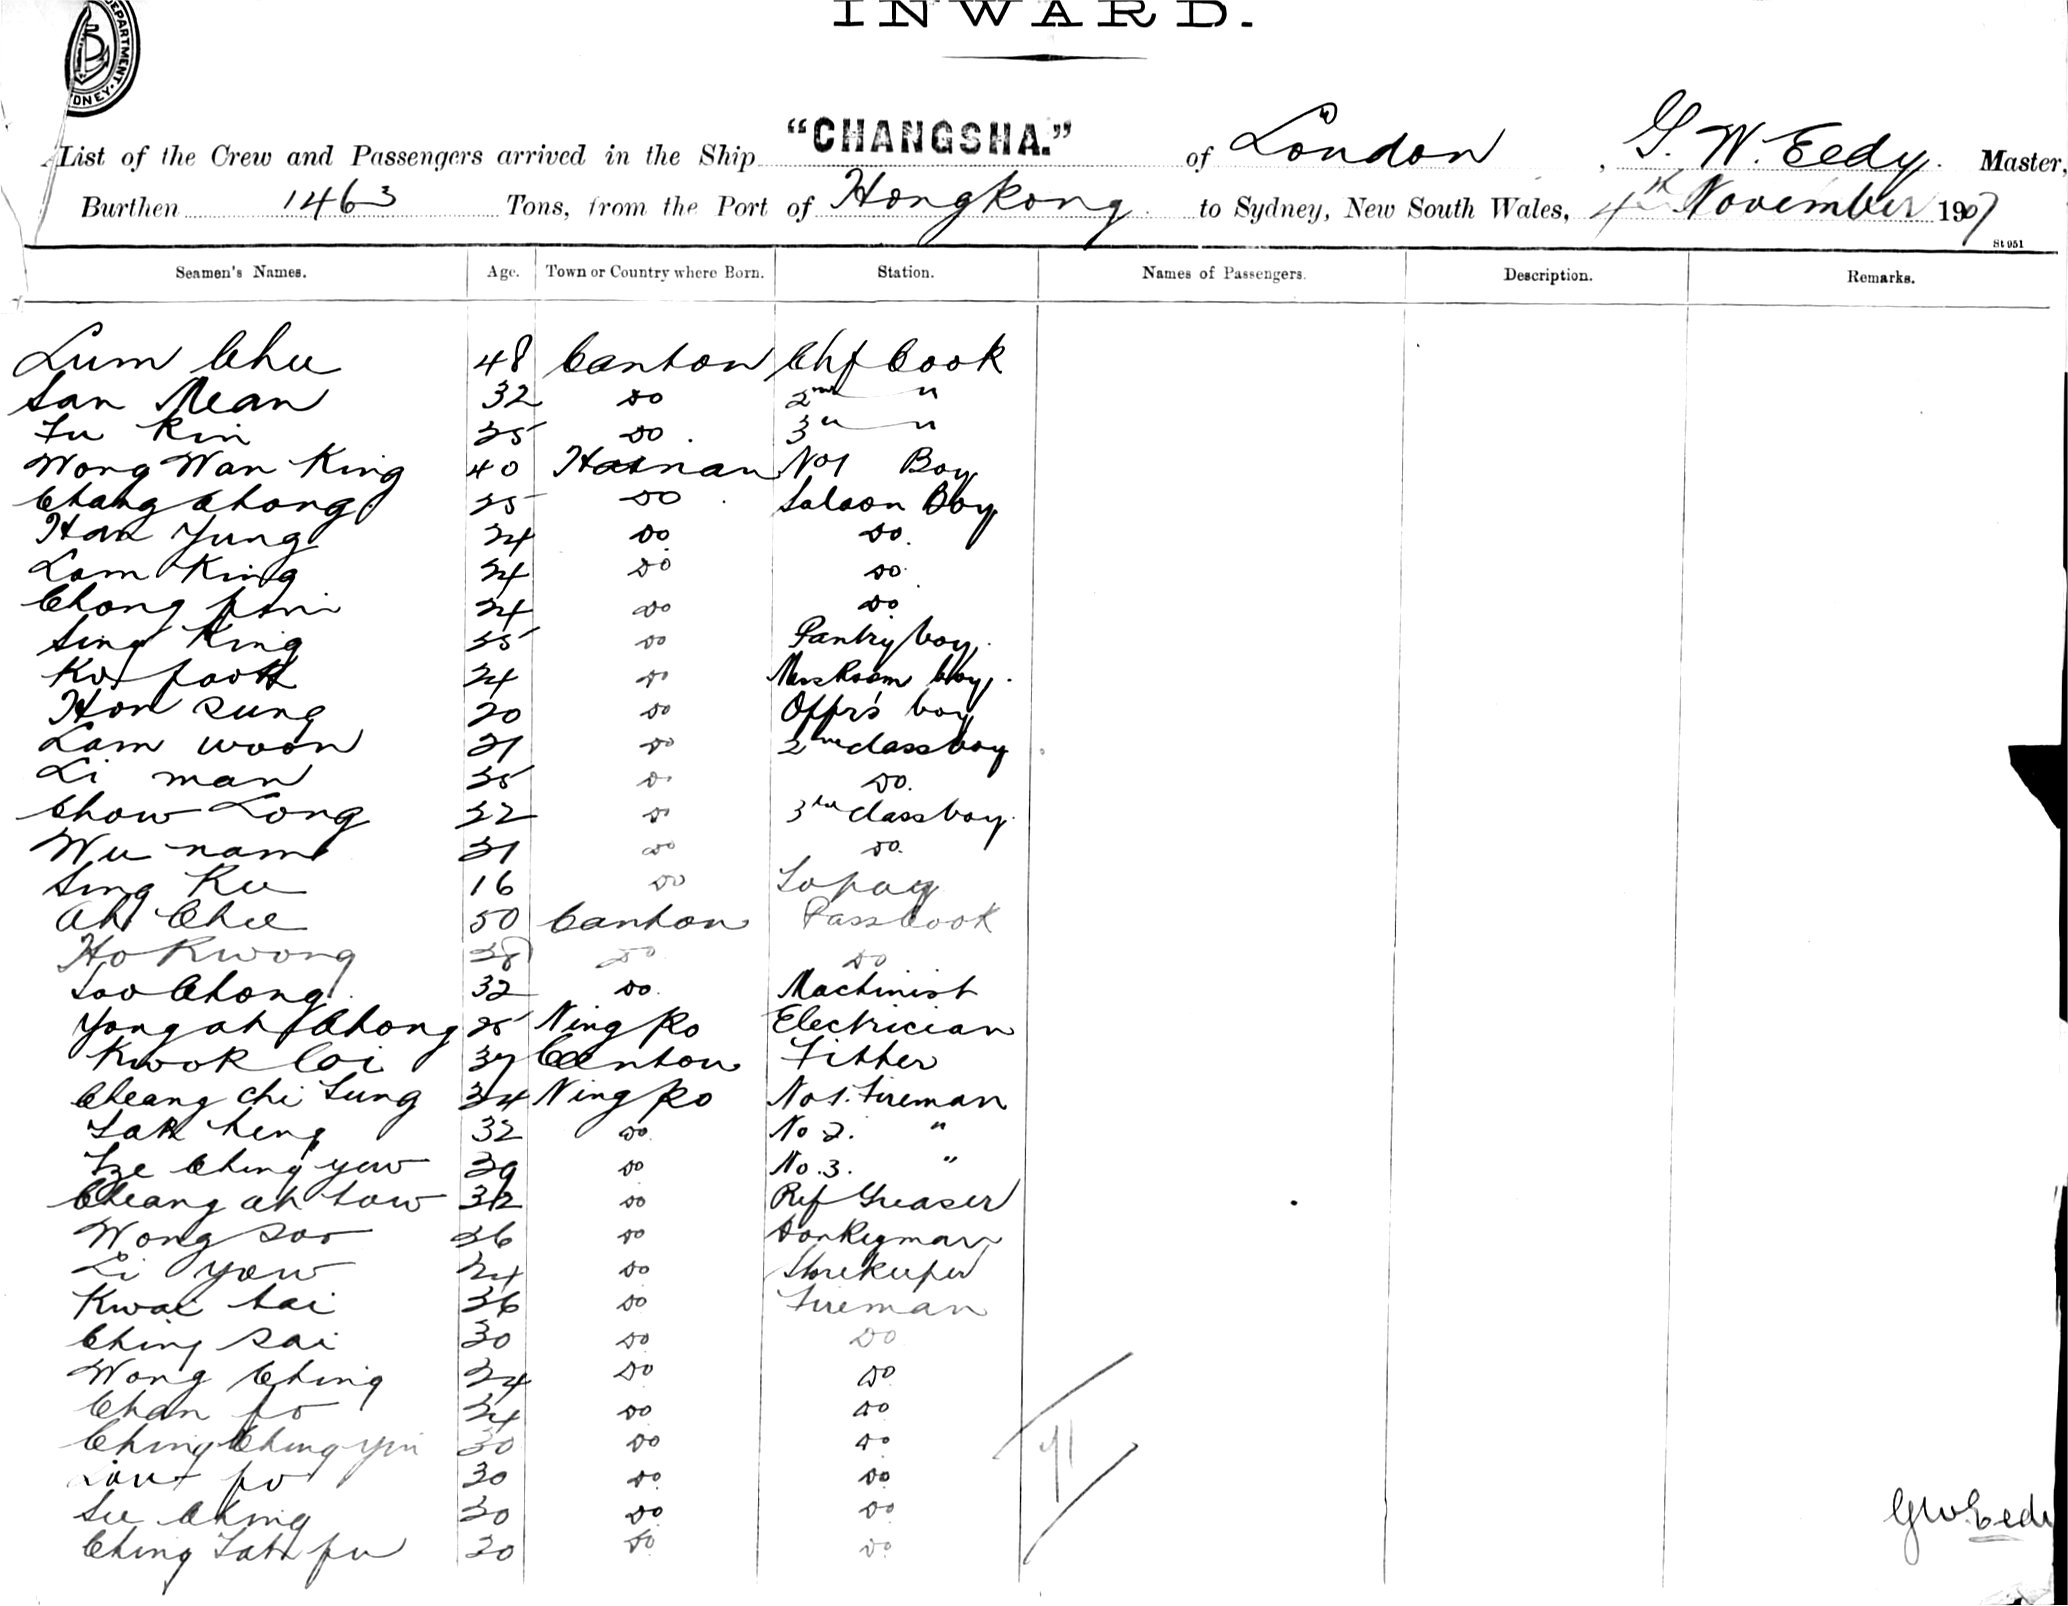 DEPARTMENT
SYDNEY
INWARD.
List of the Crew and Passengers arrived in the Ship "CHANGSHA." of London, G. W. Eedy. Master,
Burthen 1463 Tons, from the Port of Hongkong to Sydney, New South Wales, 4th November 1907
St 951
Seamen's Names. Age. Town or Country where Born. Station. Names of Passengers. Description. Remarks.
Lum Chee 48 Canton Chf Cook
San Mean 32 Do 2nd "
Fu Kin 25 Do 3rd "
Wong Wan King 40 Hainan No1 Boy
Chang Chong 25 Do Saloon Boy
Han Yung 24 Do Do
Lam King 24 Do Do
Chong 24 Do Do
Sing King 25 Do Pantry boy
24 Do MessRoom boy
Hon Sung 20 Do Offr's boy
Lam woon 21 Do 2nd class boy
Li man 25 Do Do
Chow Long 22 Do 3rd class boy
Wu nam 21 Do Do
Sing Kee 16 Do
Ah Chee 50 Canton Pass Cook
Ho Kwong 28 Do Do
Soo Chong 32 Do Machinist
Yong ah Chong 25 Ningpo Electrician
Kwok Coi 37 Canton Fitter
Cheang Chi Sung 34 Ningpo No 1. Fireman
heng 32 Do No 2. "
Sze Ching yow 39 Do No. 3. "
Cheang ah tow 32 Do Ref Greaser
Wong Soo 36 Do Donkeyman
Li yow 24 Do Storekeeper
Kwai tai 36 Do Fireman
Ching Sai 30 Do Do
Wong Ching 24 Do Do
Chan fo 24 Do Do
Ching Ching yin 30 Do Do
po 30 Do Do
See Ching 30 Do Do
Ching fu 30 Do Do
71
GW Eedy